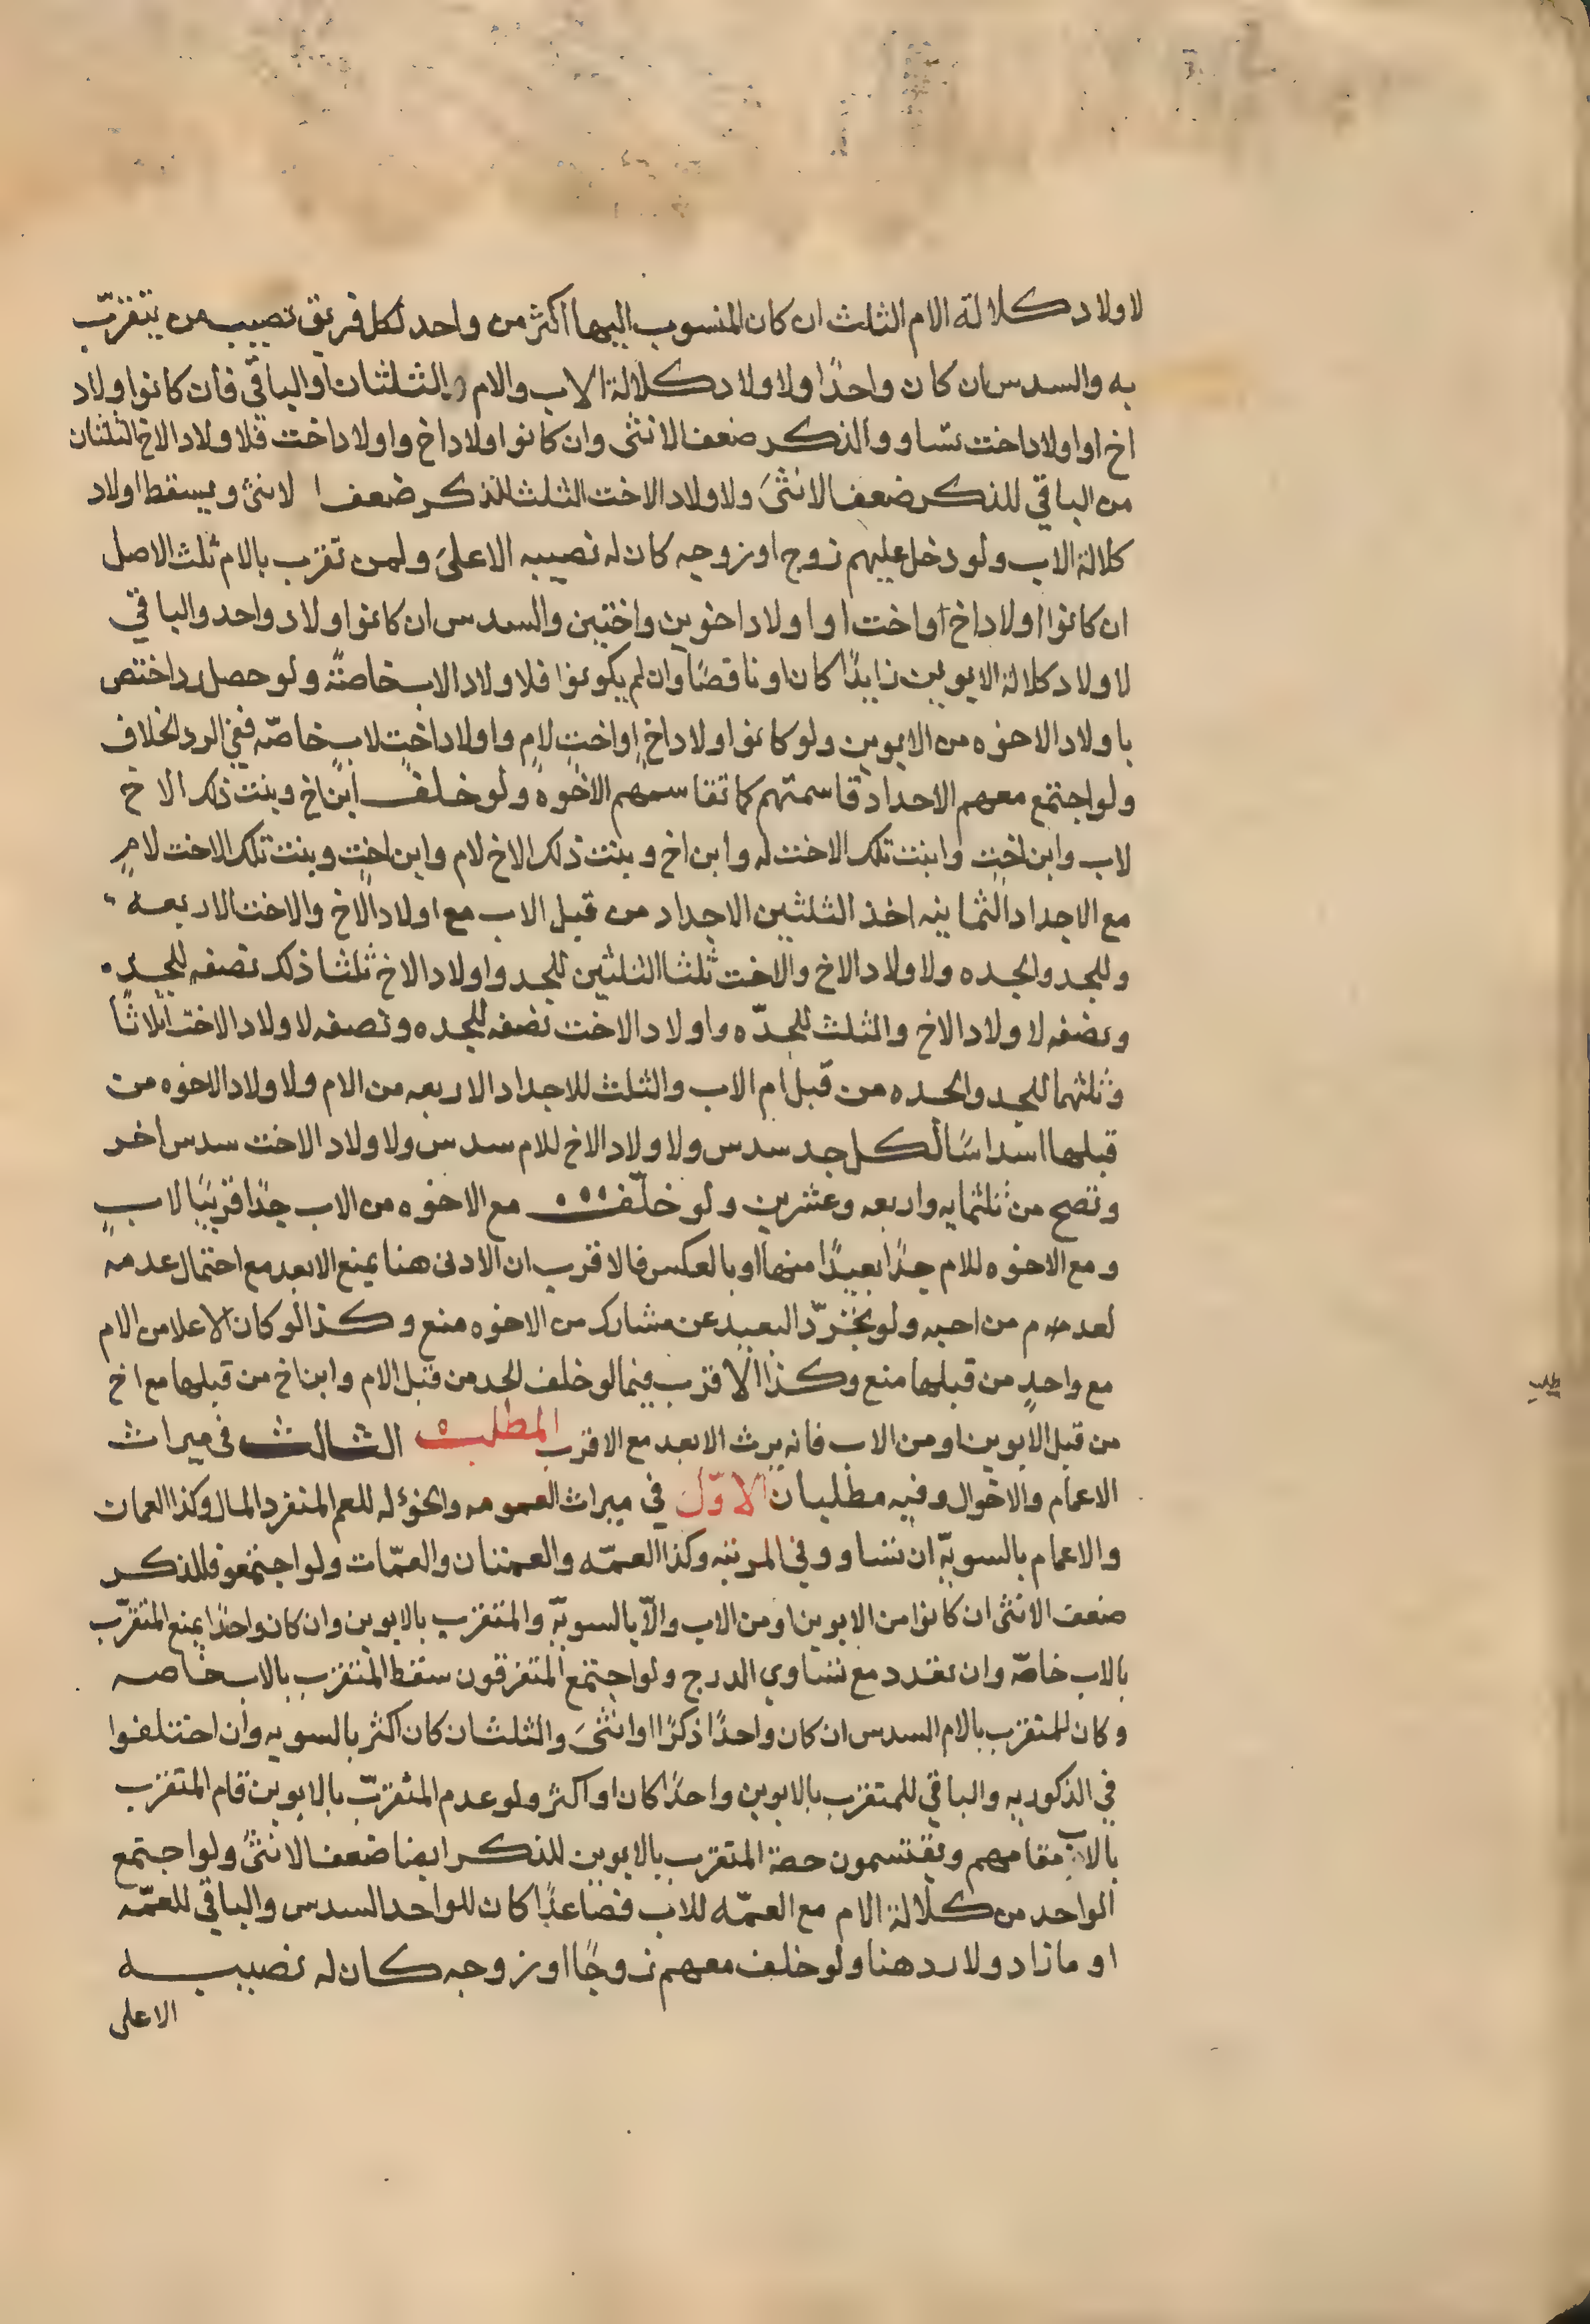 لاولاد كلالة الام الثلث ان كان المنسوب اليها اكثر من واحد لكل فريق نصيب من يتقرّب
به والسدس ان كان واحدًا ولاولاد كلالة الاب والام الثلثان او الباقي فان كانوا اولاد
اخ او اولاد اخت تساووا للذكر ضعف الانثى وان كانوا اولاد اخ واولاد اخت فلاولاد الاخ الثلثان
من الباقي للذكر ضعف الانثىَ ولاولاد الاخت الثلث للذكر ضعف الانثى ويسقط اولاد
كلالة الاب ولو دخل عليهم زوج او زوجه كان له نصيبه الاعلىَ ولمن تقرب بالام ثلث الاصل
ان كانوا اولاد اخ او اخت او اولاد اخوين واختين والسدس ان كانوا اولاد واحد والباقي
لاولاد كلالة الابوين زايدًا كان او ناقصًا وان لم يكونوا فلاولاد الاب خاصّة ولو حصل رد اختص
باولاد الاخوه من الابوين ولو كانوا اولاد اخٍ او اختٍ لامٍ واولاد اختٍ لابٍ خاصّه ففي الرد الخلاف
ولو اجتمع معهم الاجداد قاسمتهم كما تقاسمهم الاخوه ولو خلف ابن اخ وبنت ذلك الاخ
لاب وابن اختٍ وابنت تلك الاخت له وابن اخ وبنت ذلك الاخ لام وابن اختٍ وبنت تلك الاخت لامٍ
مع الاجداد الثمانيه اخذ الثلثين الاجداد من قبل الاب مع اولاد الاخ والاخت الاربعه
وللجد والجده ولاولاد الاخ والاخت ثلثا الثلثين للجد واولاد الاخ ثلثا ذلك نصفه للجد
ونصفه لاولاد الاخ والثلث للجدّه واولاد الاخت نصفه للجده ونصفه لاولاد الاخت اثلاثًا
وثلثهما للجد والجده من قبل ام الاب والثلث للاجداد الاربعه من الام ولاولاد الاخوه من
قبلها اسداسًا لكل جد سدس ولاولاد الاخ للام سدس ولاولاد الاخت سدس اخر
وتصح من ثلثمايه واربعه وعشرين ولو خلّف مع الاخوه من الاب جدًا قريبًا لابٍ
ومع الاخوه للام جدًا بعيدًا منها او بالعكس فالاقرب ان الادنى هنا يمنع الابعد مع احتمال عدمه
لعدم م من احبه ولو تجرّد البعيد عن مشارك من الاخوه منع وكذا لو كان الاعلا من الام
مع واحدٍ من قبلها منع وكذا الاقرب فيما لو خلف الجد من قبل الام وابن اخ من قبلها مع اخ
من قبل الابوين او من الاب فانه يرث الابعد مع الاقرب المطلب الثالث في ميراث
الاعمام والاخوال وفيه مطلبان الاوّل في ميراث العمومه والخؤله للعم المنفرد المال وكذا العمات
والاعمام بالسويّه ان تساووا في المرتبه وكذا العمّه والعمتان والعمّات ولو اجتمعوا فللذكر
ضعف الانثى ان كانوا من الابوين او من الاب والّا بالسويّه والمتقرب بالابوين وان كان واحدًا يمنع المتقرّب
بالاب خاصّة وان تعدد مع تساوي الدرج ولو اجتمع المتفرقون سقط المتقرب بالاب خاصه
وكان للمتقرب بالام السدس ان كان واحدًا ذكرًا او انثىَ والثلثان كان اكثر بالسويه وان اختلفوا
في الذكوريه والباقي للمتقرب بالابوين واحدًا كان او اكثر ولو عدم المتقرّب بالابوين قام المتقرب
بالاب مقامهم ويقتسمون حصة المتقرب بالابوين للذكر ايضا ضعف الانثى ولو اجتمع
الواحد من كلالة الام مع العمّه للاب فصاعدًا كان للواحد السدس والباقي للعمّه
او مازاد ولا رد هنا ولو خلف معهم زوجًا او زوجه كان له نصيبه
الاعلى
طلب